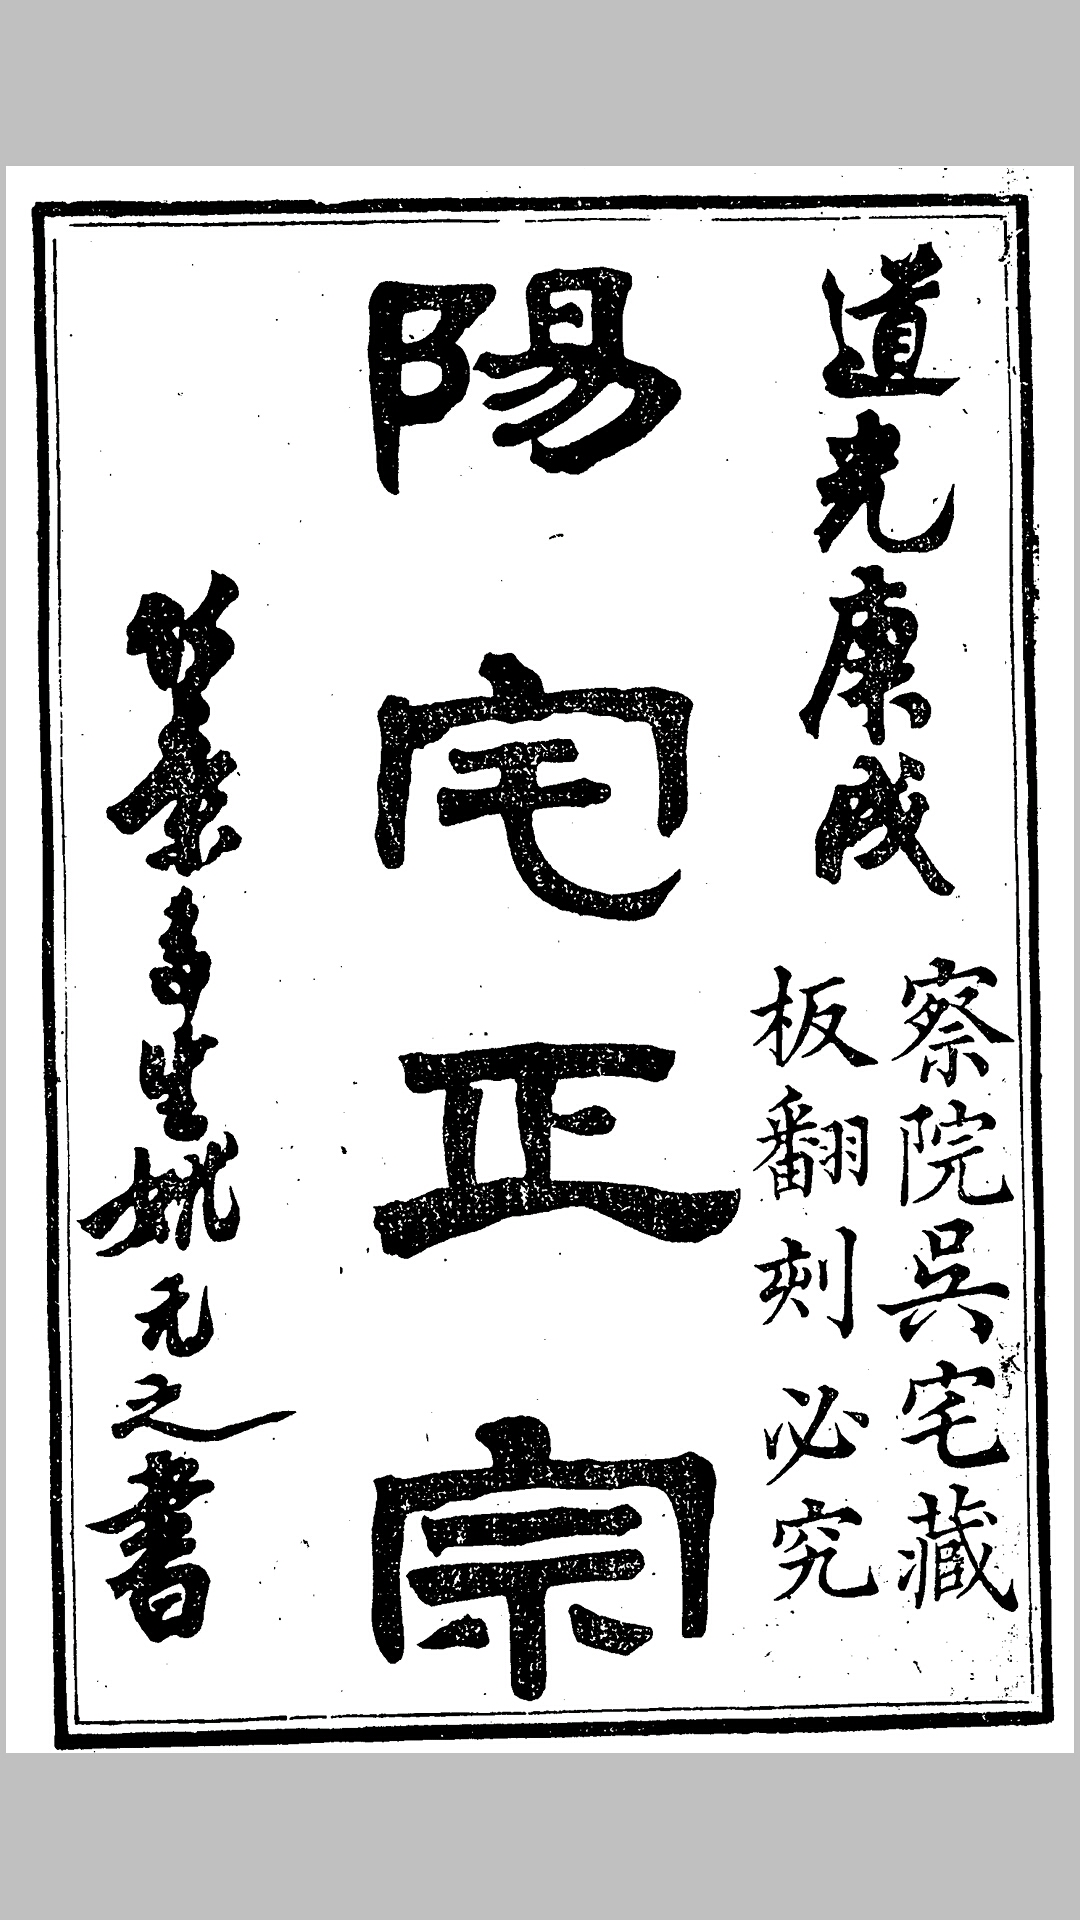 道光庚戌
察院吳宅藏
板翻刻必究
陽宅正宗
竹葉亭生姚元之書